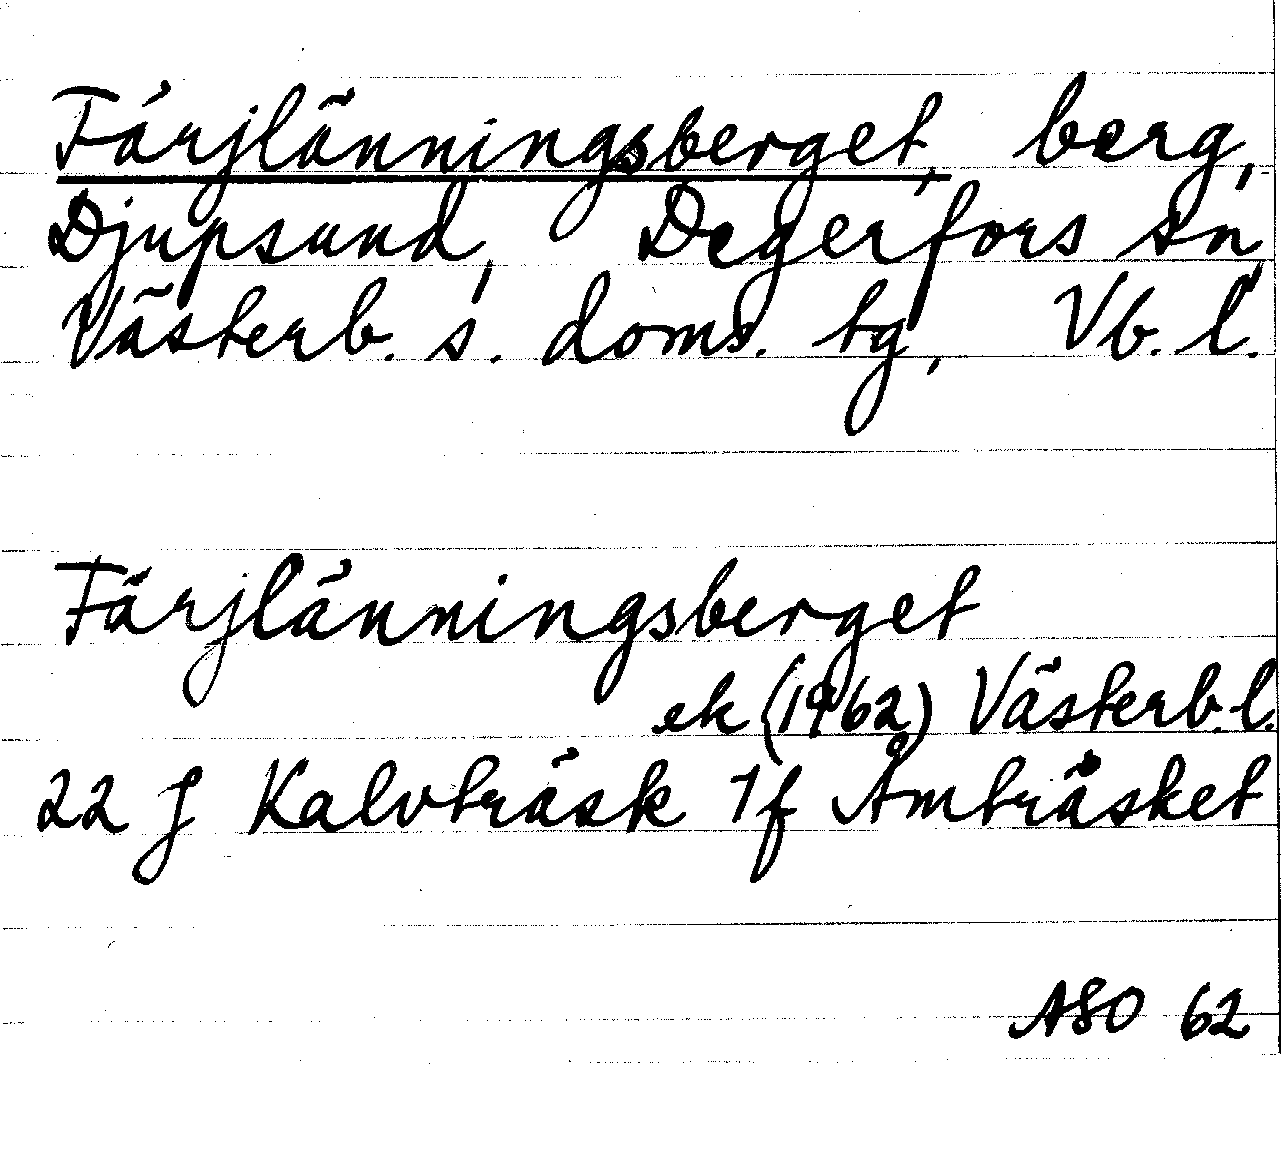 Färjlänningsberget, berg,
Djupsund, Degerfors sn,
Västerb. s. doms. tg, Vb. l.
Färjlänningsberget
ek (1962) Västerb. l.
22 J Kalvträsk 7f Åmträsket
ASO 62